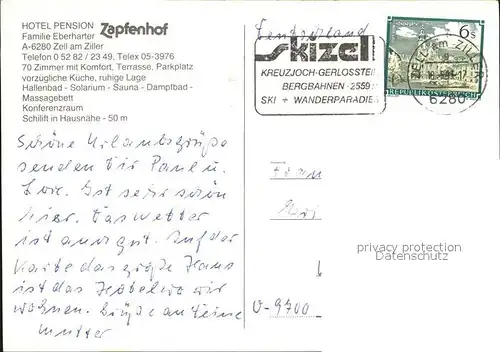 HOTEL PENSION Zapfenhof
Familie Eberharter
A-6280 Zell am Ziller
Telefon 0 52 82 / 23 49, Telex 05-3976
70 Zimmer mit Komfort, Terrasse, Parkplatz
vorzügliche Küche, ruhige Lage
Hallenbad - Solarium - Sauna - Dampfbad -
Massagebett
Konferenzraum
Schilift in Hausnähe - 50 m
Schöne Urlaubsgrüße
senden dir Paul u.
Ist sehr schön
hier. Das Wetter
ist auch gut. Auf der
Karte das große Haus
ist das Hotel wo wir
wohnen. Grüße an deine
Mutter
skizell
KREUZJOCH-GERLOSSTEIN
BERGBAHNEN 2559
SKI + WANDERPARADIES
6 S
REPUBLIK ÖSTERREICH
ZELL am ZILLER
6280
Frau
0-9700
privacy protection
Datenschutz